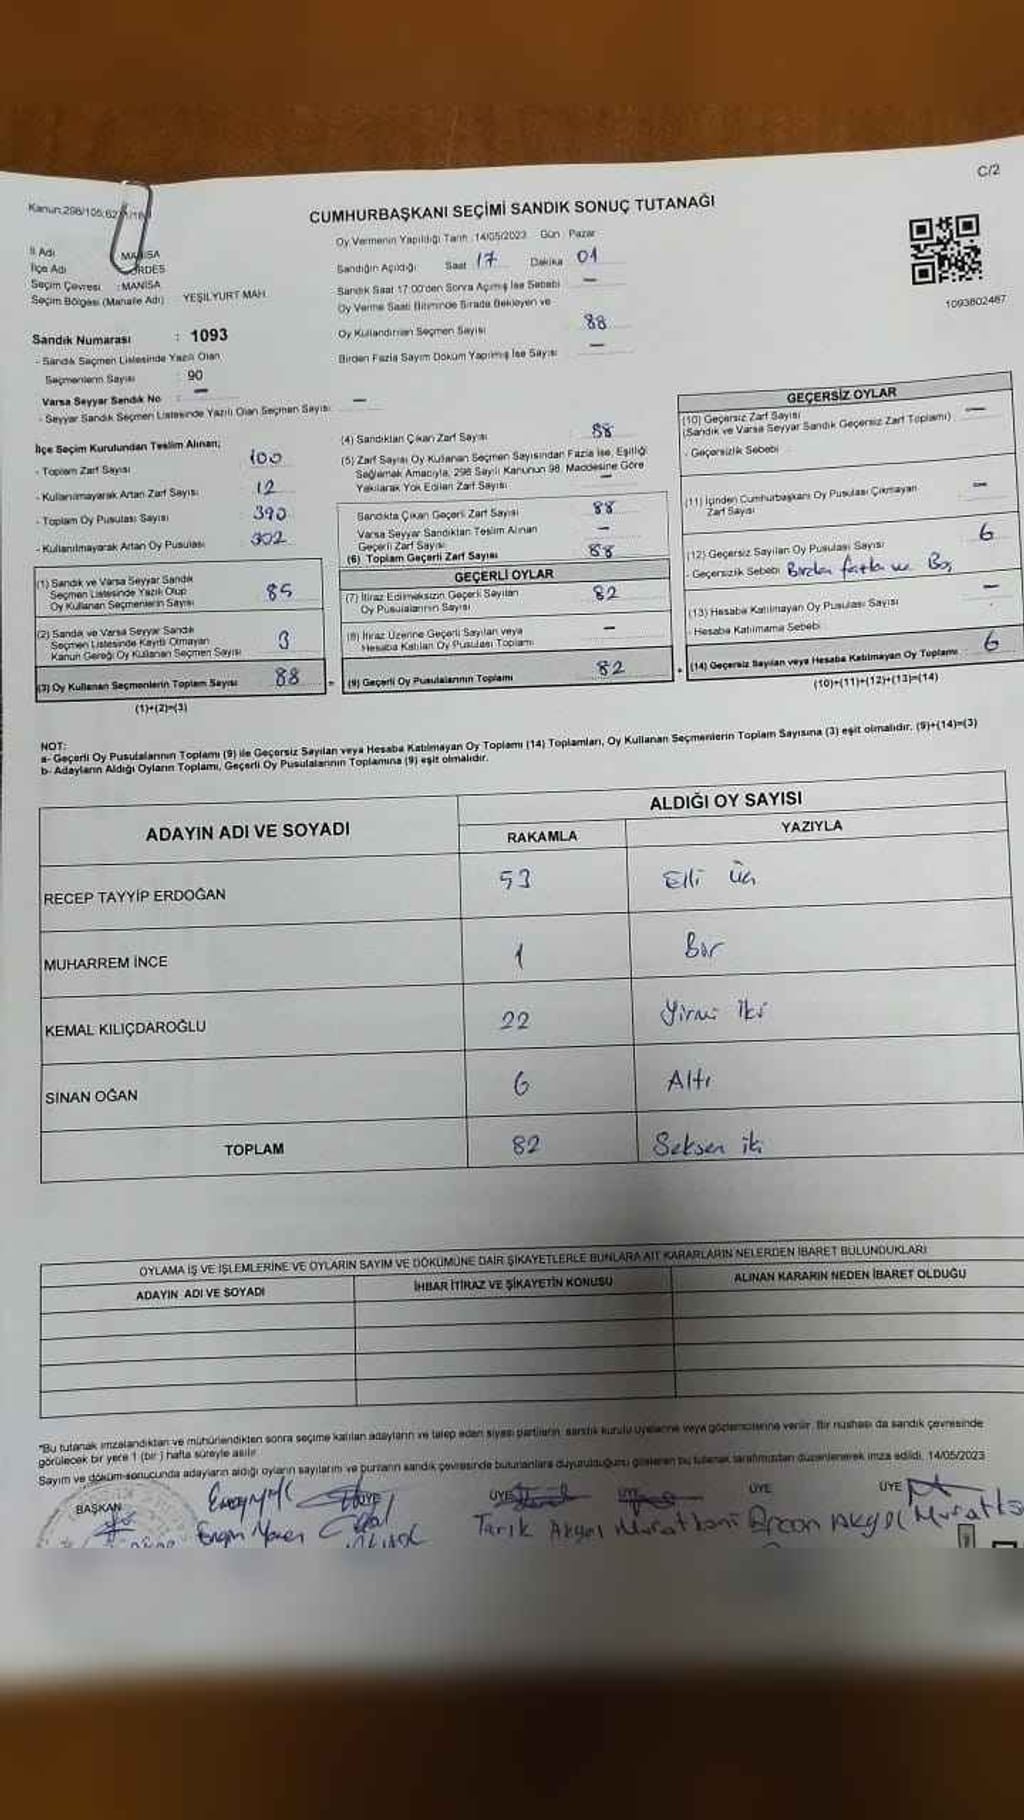 C/2
Kanun:298/105,62
CUMHURBAŞKANI SEÇİMİ SANDIK SONUÇ TUTANAĞI
Oy Vermenin Yapıldığı Tarih :14/05/2023 Gün : Pazar
İl Adı : MANİSA
İlçe Adı
Seçim Çevresi : MANİSA
Seçim Bölgesi (Mahalle Adı) YEŞİLYURT MAH.
Sandığın Açıldığı Saat 17 Dakika 01
Sandık Saat 17:00'den Sonra Açılmış İse Sebebi —
Oy Verme Saati Bitiminde Sırada Bekleyen ve
Oy Kullandırılan Seçmen Sayısı 88
Birden Fazla Sayım Döküm Yapılmış İse Sayısı —
1093802467
Sandık Numarası : 1093
- Sandık Seçmen Listesinde Yazılı Olan
Seçmenlerin Sayısı : 90
Varsa Seyyar Sandık No : —
- Seyyar Sandık Seçmen Listesinde Yazılı Olan Seçmen Sayısı : —
İlçe Seçim Kurulundan Teslim Alınan;
- Toplam Zarf Sayısı 100
- Kullanılmayarak Artan Zarf Sayısı 12
- Toplam Oy Pusulası Sayısı 390
- Kullanılmayarak Artan Oy Pusulası 302
(1) Sandık ve Varsa Seyyar Sandık
Seçmen Listesinde Yazılı Olup
Oy Kullanan Seçmenlerin Sayısı 85
(2) Sandık ve Varsa Seyyar Sandık
Seçmen Listesinde Kayıtlı Olmayan
Kanun Gereği Oy Kullanan Seçmen Sayısı 3
(3) Oy Kullanan Seçmenlerin Toplam Sayısı 88
(1)+(2)=(3)
(4) Sandıktan Çıkan Zarf Sayısı 88
(5) Zarf Sayısı Oy Kullanan Seçmen Sayısından Fazla İse, Eşitliği
Sağlamak Amacıyla, 298 Sayılı Kanunun 98. Maddesine Göre
Yakılarak Yok Edilen Zarf Sayısı —
Sandıkta Çıkan Geçerli Zarf Sayısı 88
Varsa Seyyar Sandıktan Teslim Alınan
Geçerli Zarf Sayısı —
(6) Toplam Geçerli Zarf Sayısı 88
GEÇERLİ OYLAR
(7) İtiraz Edilmeksizin Geçerli Sayılan
Oy Pusulalarının Sayısı 82
(8) İtiraz Üzerine Geçerli Sayılan veya
Hesaba Katılan Oy Pusulası Toplamı —
(9) Geçerli Oy Pusulalarının Toplamı 82
GEÇERSİZ OYLAR
(10) Geçersiz Zarf Sayısı
(Sandık ve Varsa Seyyar Sandık Geçersiz Zarf Toplamı) —
- Geçersizlik Sebebi
(11) İçinden Cumhurbaşkanı Oy Pusulası Çıkmayan
Zarf Sayısı —
(12) Geçersiz Sayılan Oy Pusulası Sayısı 6
- Geçersizlik Sebebi Birden fazla ve Boş
(13) Hesaba Katılmayan Oy Pusulası Sayısı —
- Hesaba Katılmama Sebebi
(14) Geçersiz Sayılan veya Hesaba Katılmayan Oy Toplamı 6
(10)+(11)+(12)+(13)=(14)
NOT:
a- Geçerli Oy Pusulalarının Toplamı (9) ile Geçersiz Sayılan veya Hesaba Katılmayan Oy Toplamı (14) Toplamları, Oy Kullanan Seçmenlerin Toplam Sayısına (3) eşit olmalıdır. (9)+(14)=(3)
b- Adayların Aldığı Oyların Toplamı, Geçerli Oy Pusulalarının Toplamına (9) eşit olmalıdır.
ADAYIN ADI VE SOYADI ALDIĞI OY SAYISI
RAKAMLA YAZIYLA
RECEP TAYYİP ERDOĞAN 53 Elli üç
MUHARREM İNCE 1 Bir
KEMAL KILIÇDAROĞLU 22 Yirmi iki
SİNAN OĞAN 6 Altı
TOPLAM 82 Seksen iki
OYLAMA İŞ VE İŞLEMLERİNE VE OYLARIN SAYIM VE DÖKÜMÜNE DAİR ŞİKAYETLERLE BUNLARA AİT KARARLARIN NELERDEN İBARET BULUNDUKLARI
ADAYIN ADI VE SOYADI İHBAR İTİRAZ VE ŞİKAYETİN KONUSU ALINAN KARARIN NEDEN İBARET OLDUĞU
*Bu tutanak imzalandıktan ve mühürlendikten sonra seçime katılan adayların ve talep eden siyasi partilerin sandık kurulu üyelerine veya gözlemcilerine verilir. Bir nüshası da sandık çevresinde
görülecek bir yere 1 (bir) hafta süreyle asılır.
Sayım ve döküm sonucunda adayların aldığı oyların sayılarını ve bunların sandık çevresinde bulunanlara duyurulduğunu gösteren bu tutanak tarafımızdan düzenlenerek imza edildi. 14/05/2023
BAŞKAN ÜYE ÜYE ÜYE ÜYE
Engin Tarık Akyol